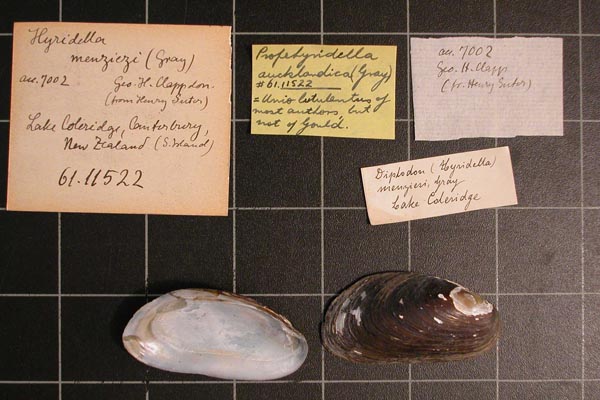 Hyridella
menziezi (Gray)
acc. 7002 Geo. H. Clapp don.
(from Henry Suter)
Lake Coleridge, Canterbury,
New Zealand (S. Island)
61.11522
Propehyridella
aucklandica (Gray)
#61.11522
= Unio lutulentus of
most authors, but
not of Gould.
acc. 7002
Geo. H. Clapp
(fr. Henry Suter)
Diplodon (Hyridella)
menziesi, Gray
Lake Coleridge